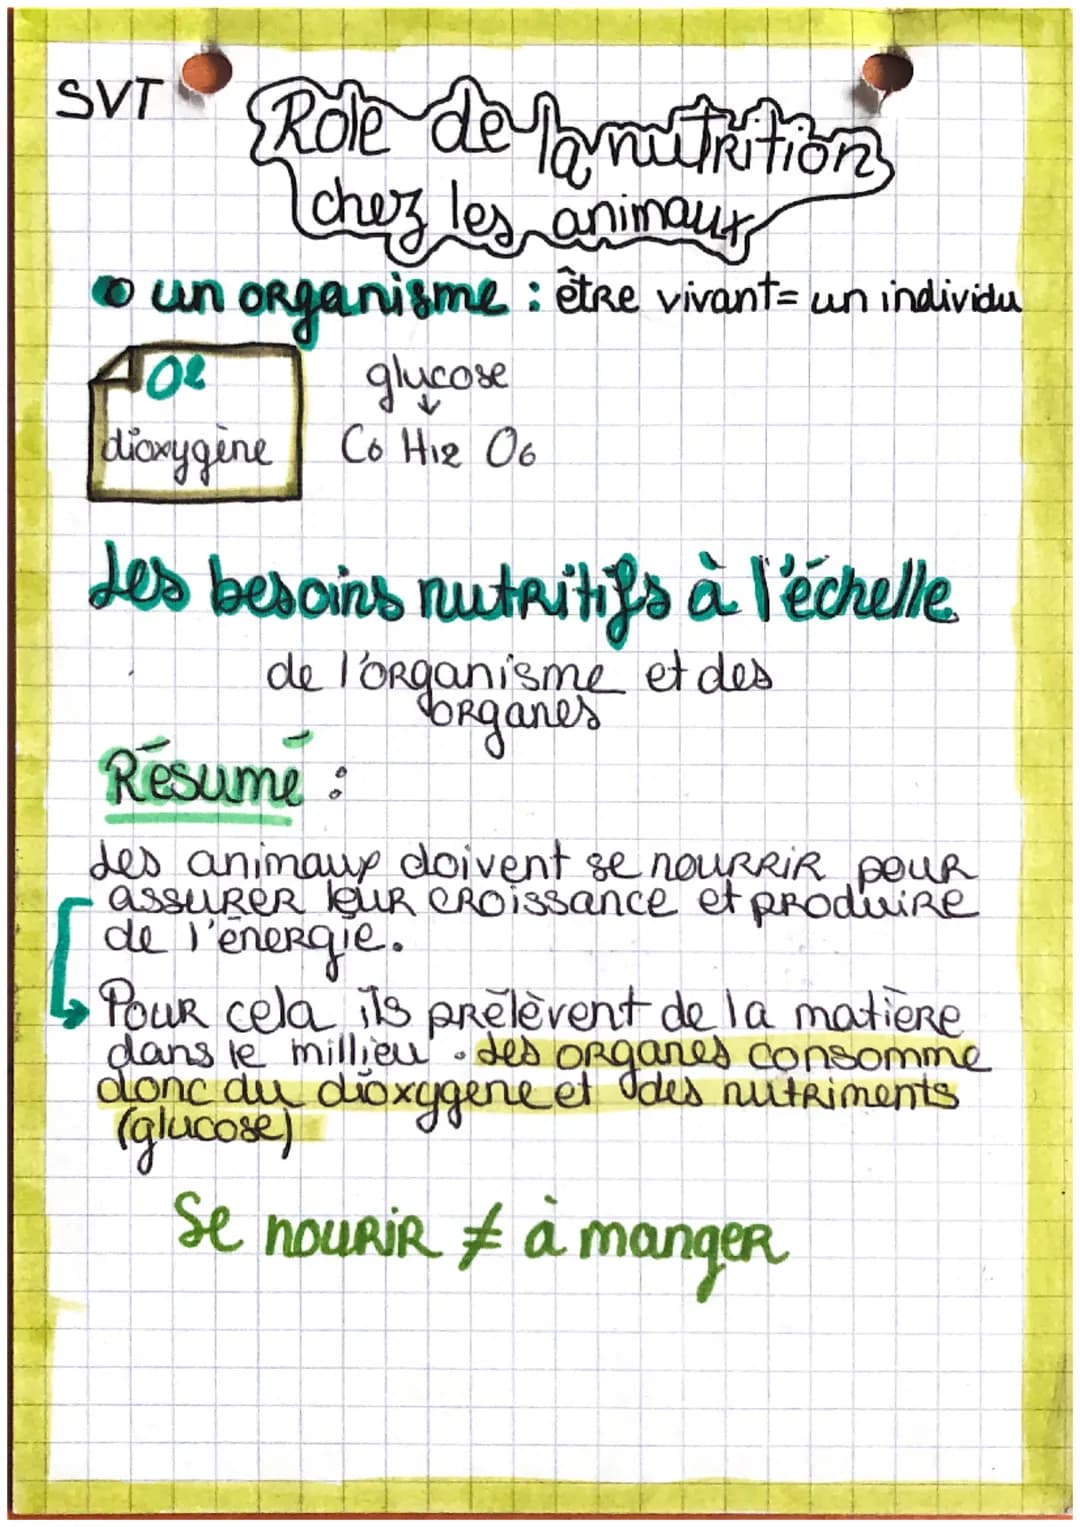 SVT
Role de la nutrition
chez les animaux
un organisme : être vivant = un individu
O2
dioxygène
glucose
↓
C6 H12 O6
Les besoins nutritifs à l'échelle
de l'organisme et des
organes
Résumé :
Les animaux doivent se nourrir pour
assurer leur croissance et produire
de l'énergie.
Pour cela ils prélèvent de la matière
dans le millieu. Les organes consomme
donc du dioxygene et des nutriments
(glucose)
Se nourir ≠ à manger